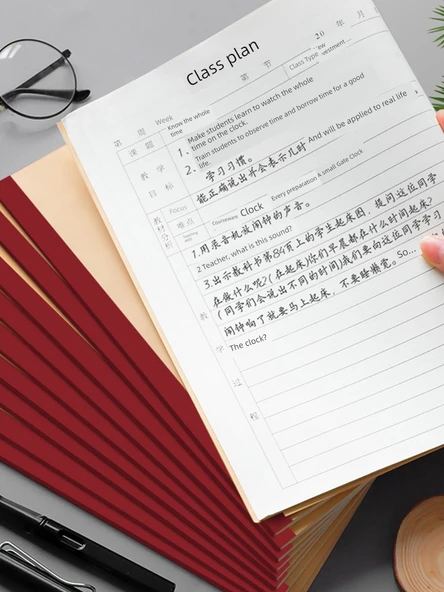 Class plan
20 年 月
第 周 Week
第 节
Class Type
课 题
Know the whole time
1. Make students learn to watch the whole time on the clock.
2. Train students to observe time and borrow time for a good life.
学习习惯。
教 学 目 标
能正确说出并会表示几时 And will be applied to real life
Focus
难点
教材分析
Courseware Clock Every preparation A small Gate Clock
1.用录音机放闹钟的声音。
2 Teacher, what is this sound?
3.出示教科书第84页上的学生起床图，提问这位同学
在做什么呢?(在起床)你们早晨都在什么时间起床?
(同学们会说出不同的时间)我们要向这位同学学习
闹钟响了就要马上起床，不要睡懒觉。So...
The clock?
教
学
过
程